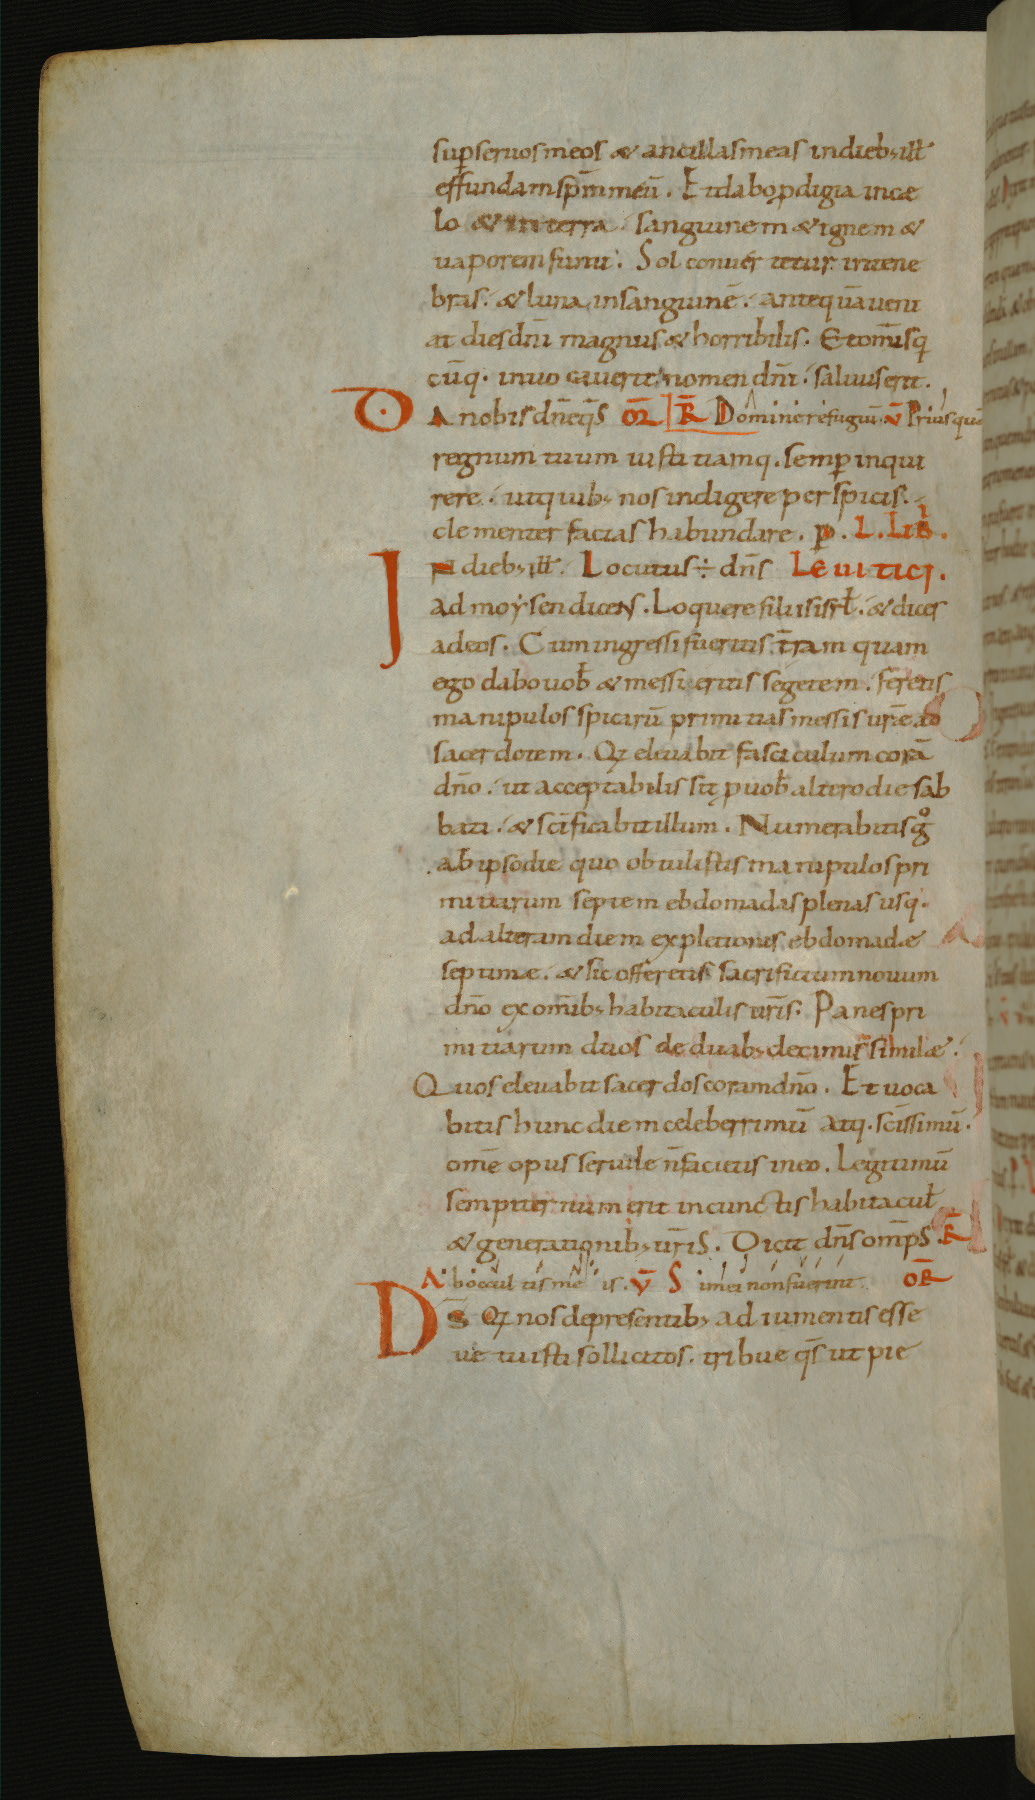 sup̄ seruos meos & ancillas meas in dieb; ill̄
effundam sp̄m meū. Et dabo ꝓdigia in cæ
lo & in terra. sanguinem & ignem &
uaporem fumi. Sol conuertetur in tene
bras. & luna in sanguinē. antequā ueni
at dies dn̄i magnus & horribilis. Et om̄is q̄
cūq. inuocauerit nomen dn̄i. saluus erit.
DA nobis dn̄e q̄s OR̄ R̄ Domine refugiū V̄ Priusquā
regnum tuum iustitiamq. semp̄ inqui
rere. ut quib; nos indigere perspicis.
clementer facias habundare. p̄. L. LIB̄.
IN dieb; ill̄. Locutus ÷ dn̄s LEUITICI.
ad moẏsen dicens. Loquere filiis isrl̄. & dices
ad eos. Cum ingressi fueritis t̄ram quam
ego dabo uob̄ & messueritis segetem. feretis
manipulos spicarū primitias messis ur̄e ad
sacerdotem. Qꝫ eleuabit fasciculum corā
dn̄o. ut acceptabilis sit ꝓ uob̄ altero die sab
bati. & sc̄ificabit illum. Numerabitis gͦ
ab ipso die quo obtulistis manipulos pri
mitiarum septem ebdomadas plenas usq.
ad alteram diem expletionis ebdomadæ
septimæ. & sic offeretis sacrificium nouum
dn̄o ex om̄ib; habitaculis ur̄is. Panes pri
mitiarum duos de duab; decimis similæ.
Quos eleuabit sacerdos coram dn̄o. Et uoca
bitis hunc diem celeberrimū atq. sc̄issimū.
om̄e opus seruile n̄ facietis in eo. Legitimū
sempiternum erit in cunctis habitacul̄
& generationib; ur̄is. Dicit dn̄s om̄ps. R̄
Ab occultis meis. V̄ Si mei non fuerint OR̄
DS̄ Qꝫ nos de presentib; adiumentis esse
uetuisti sollicitos. tribue q̄s ut pie